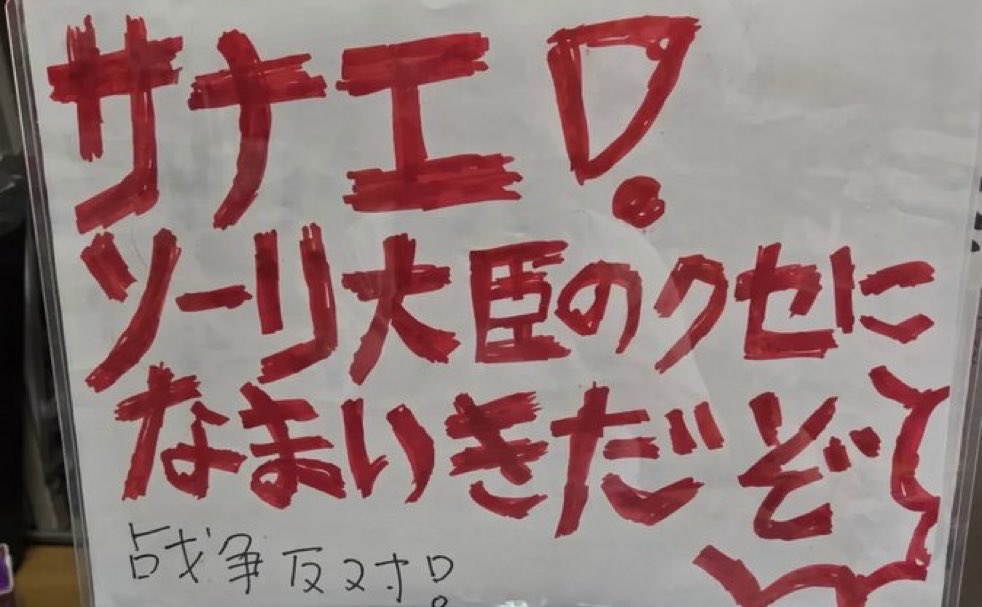 サナエ!
ソーリ大臣のクセに
なまいきだぞ
战争反対!